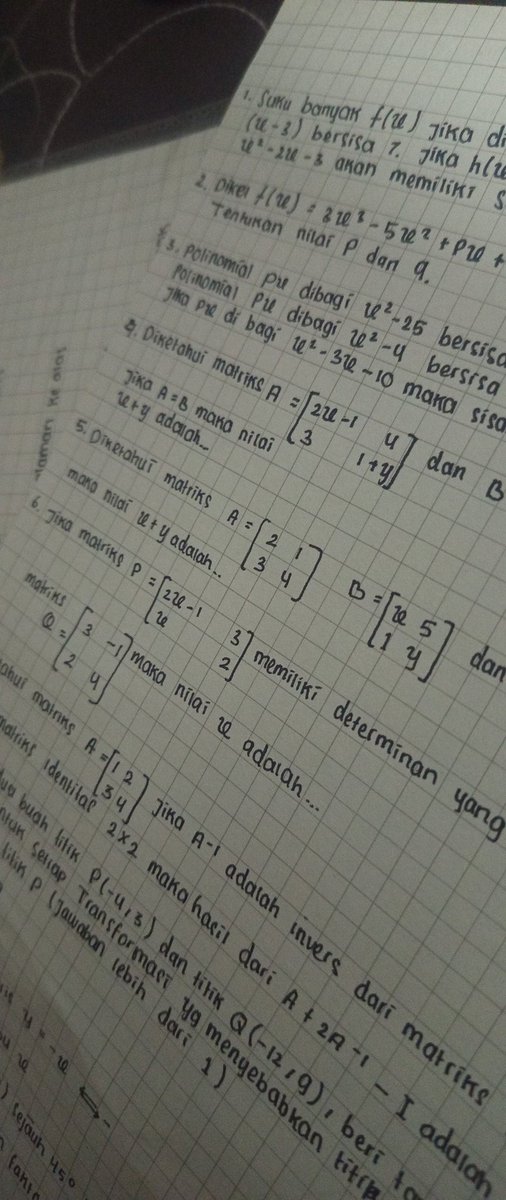 1. Suku banyak f(x) jika di
(x-3) bersisa 7. Jika h(x
x²-2x-3 akan memiliki s
2. Diket f(x) = 3x³ - 5x² + px +
Tentukan nilai p dan q.
3. Polinomial px dibagi x²-25 bersisa
Polinomial px dibagi x²-4 bersisa
Jika px di bagi x²-3x-10 maka sisa
4. Diketahui matriks A = [2x-1 4
3 1+y] dan B
Jika A=B maka nilai
x+y adalah...
5. Diketahui matriks A = [2 1
3 4] B = [x 5
1 y] dan
maka nilai x+y adalah...
6. Jika matriks P = [2x-1 3
x 2] memiliki determinan yang
matriks
Q = [3 -1
2 4] maka nilai x adalah...
ahui matriks A = [1 2
3 4] Jika A-1 adalah invers dari matriks
matriks identitas 2x2 maka hasil dari A + 2A-1 - I adalah
dua buah titik P(-4,3) dan titik Q(-12,9), beri ta
ntuk setiap Transformasi yg menyebabkan titik
titik P (Jawaban lebih dari 1)
y = -x ⟺
sejauh 45°
laman ke atas